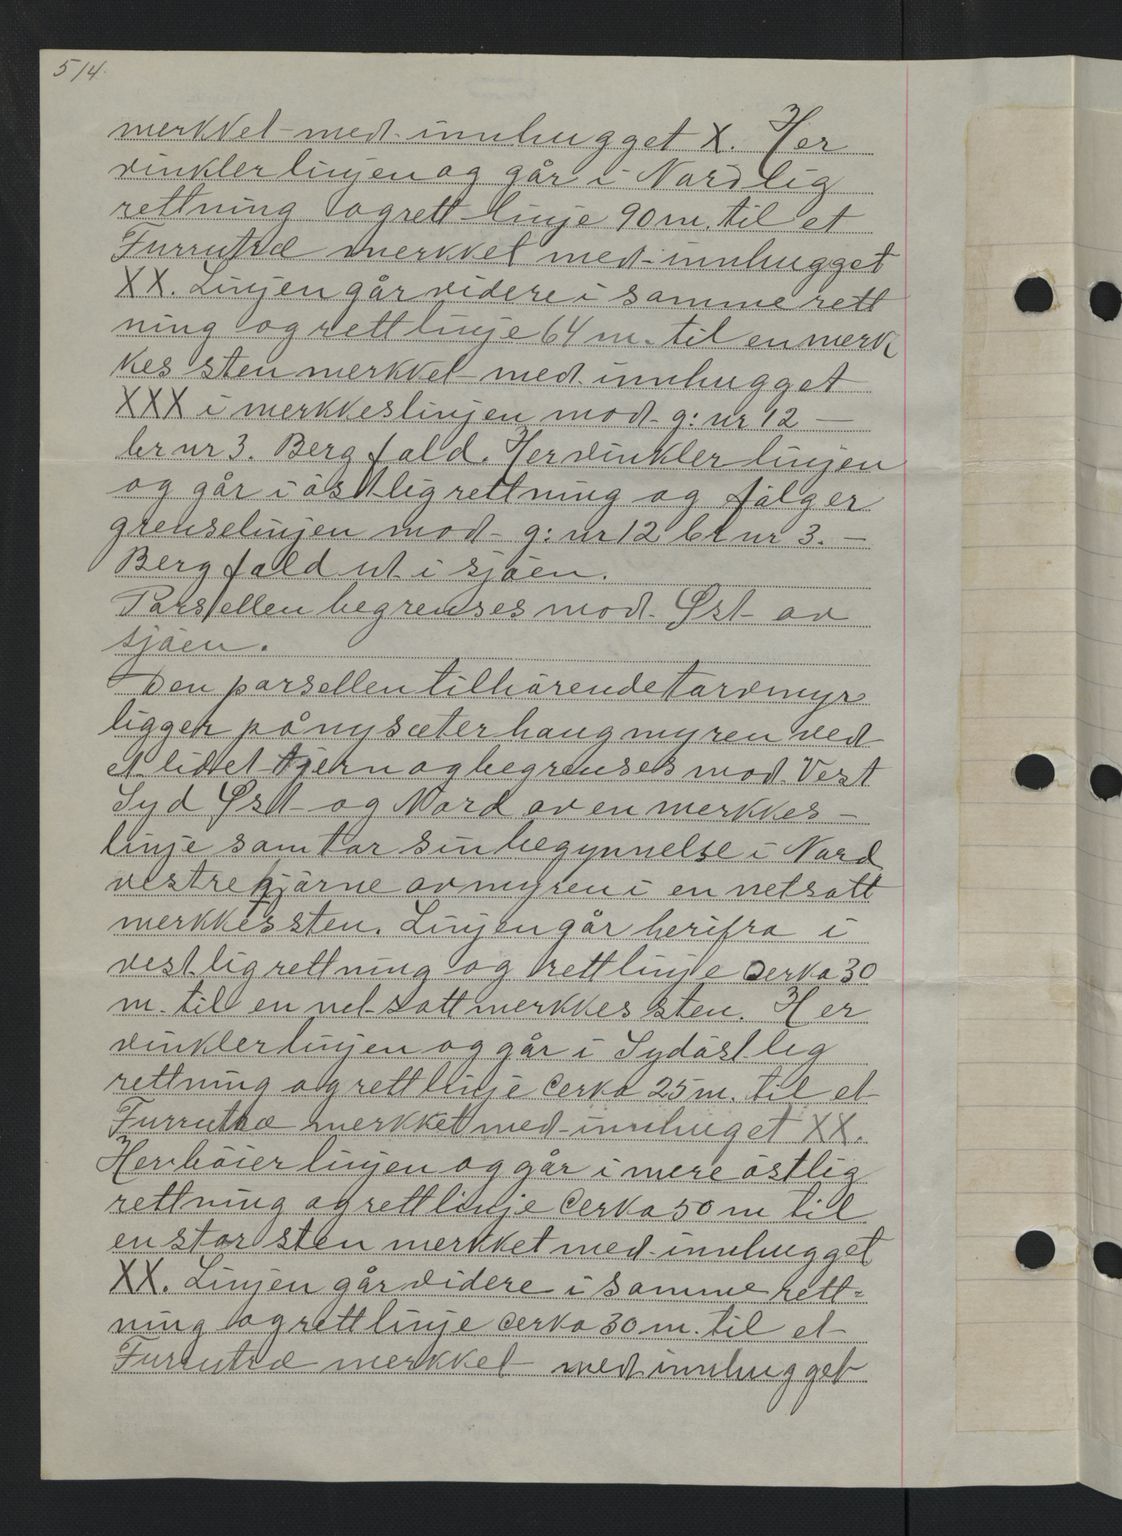 514.
merkket med innhugget X. Her
vinkler linjen og går i Nordlig
rettning og rett linje 90 m. til et
Furrutræ merkket med innhugget
XX. Linjen går videre i samme rett
ning og rett linje 64 m. til en merk
kes sten merkket med innhugget
XXX i merkkeslinjen mod g: nr 12 —
br nr 3. Bergfald. Her vinkler linjen
og går i östlig rettning og fölger
grenselinjen mod g: nr 12 br nr 3. —
Bergfald ut i sjöen.
Parsellen begrenses mod Øst av
sjöen.
Den parsellen tilhörende tarvmyr
ligger på nysæterhaugmyren ved
et lidet tjern og begrenses mod Vest
Syd Øst og Nord av en merkkes –
linje som tar sin begynnelse i Nord
vestre hjörne av myren i en netsatt
merkkessten. Linjen går herifra i
vestlig rettning og rett linje cerka 30
m. til en netsatt merkkes sten. Her
vinkler linjen og går i Sydöstlig
rettning og rett linje cerka 25 m. til et
Furrutræ merkket med innhuget XX.
Her böier linjen og går i mere östlig
rettning og rett linje cerka 50 m til
en stor sten merkket med innhugget
XX. Linjen går videre i samme rett=
ning og rett linje cerka 30 m. til et
Furrutræ merkket med innhugget